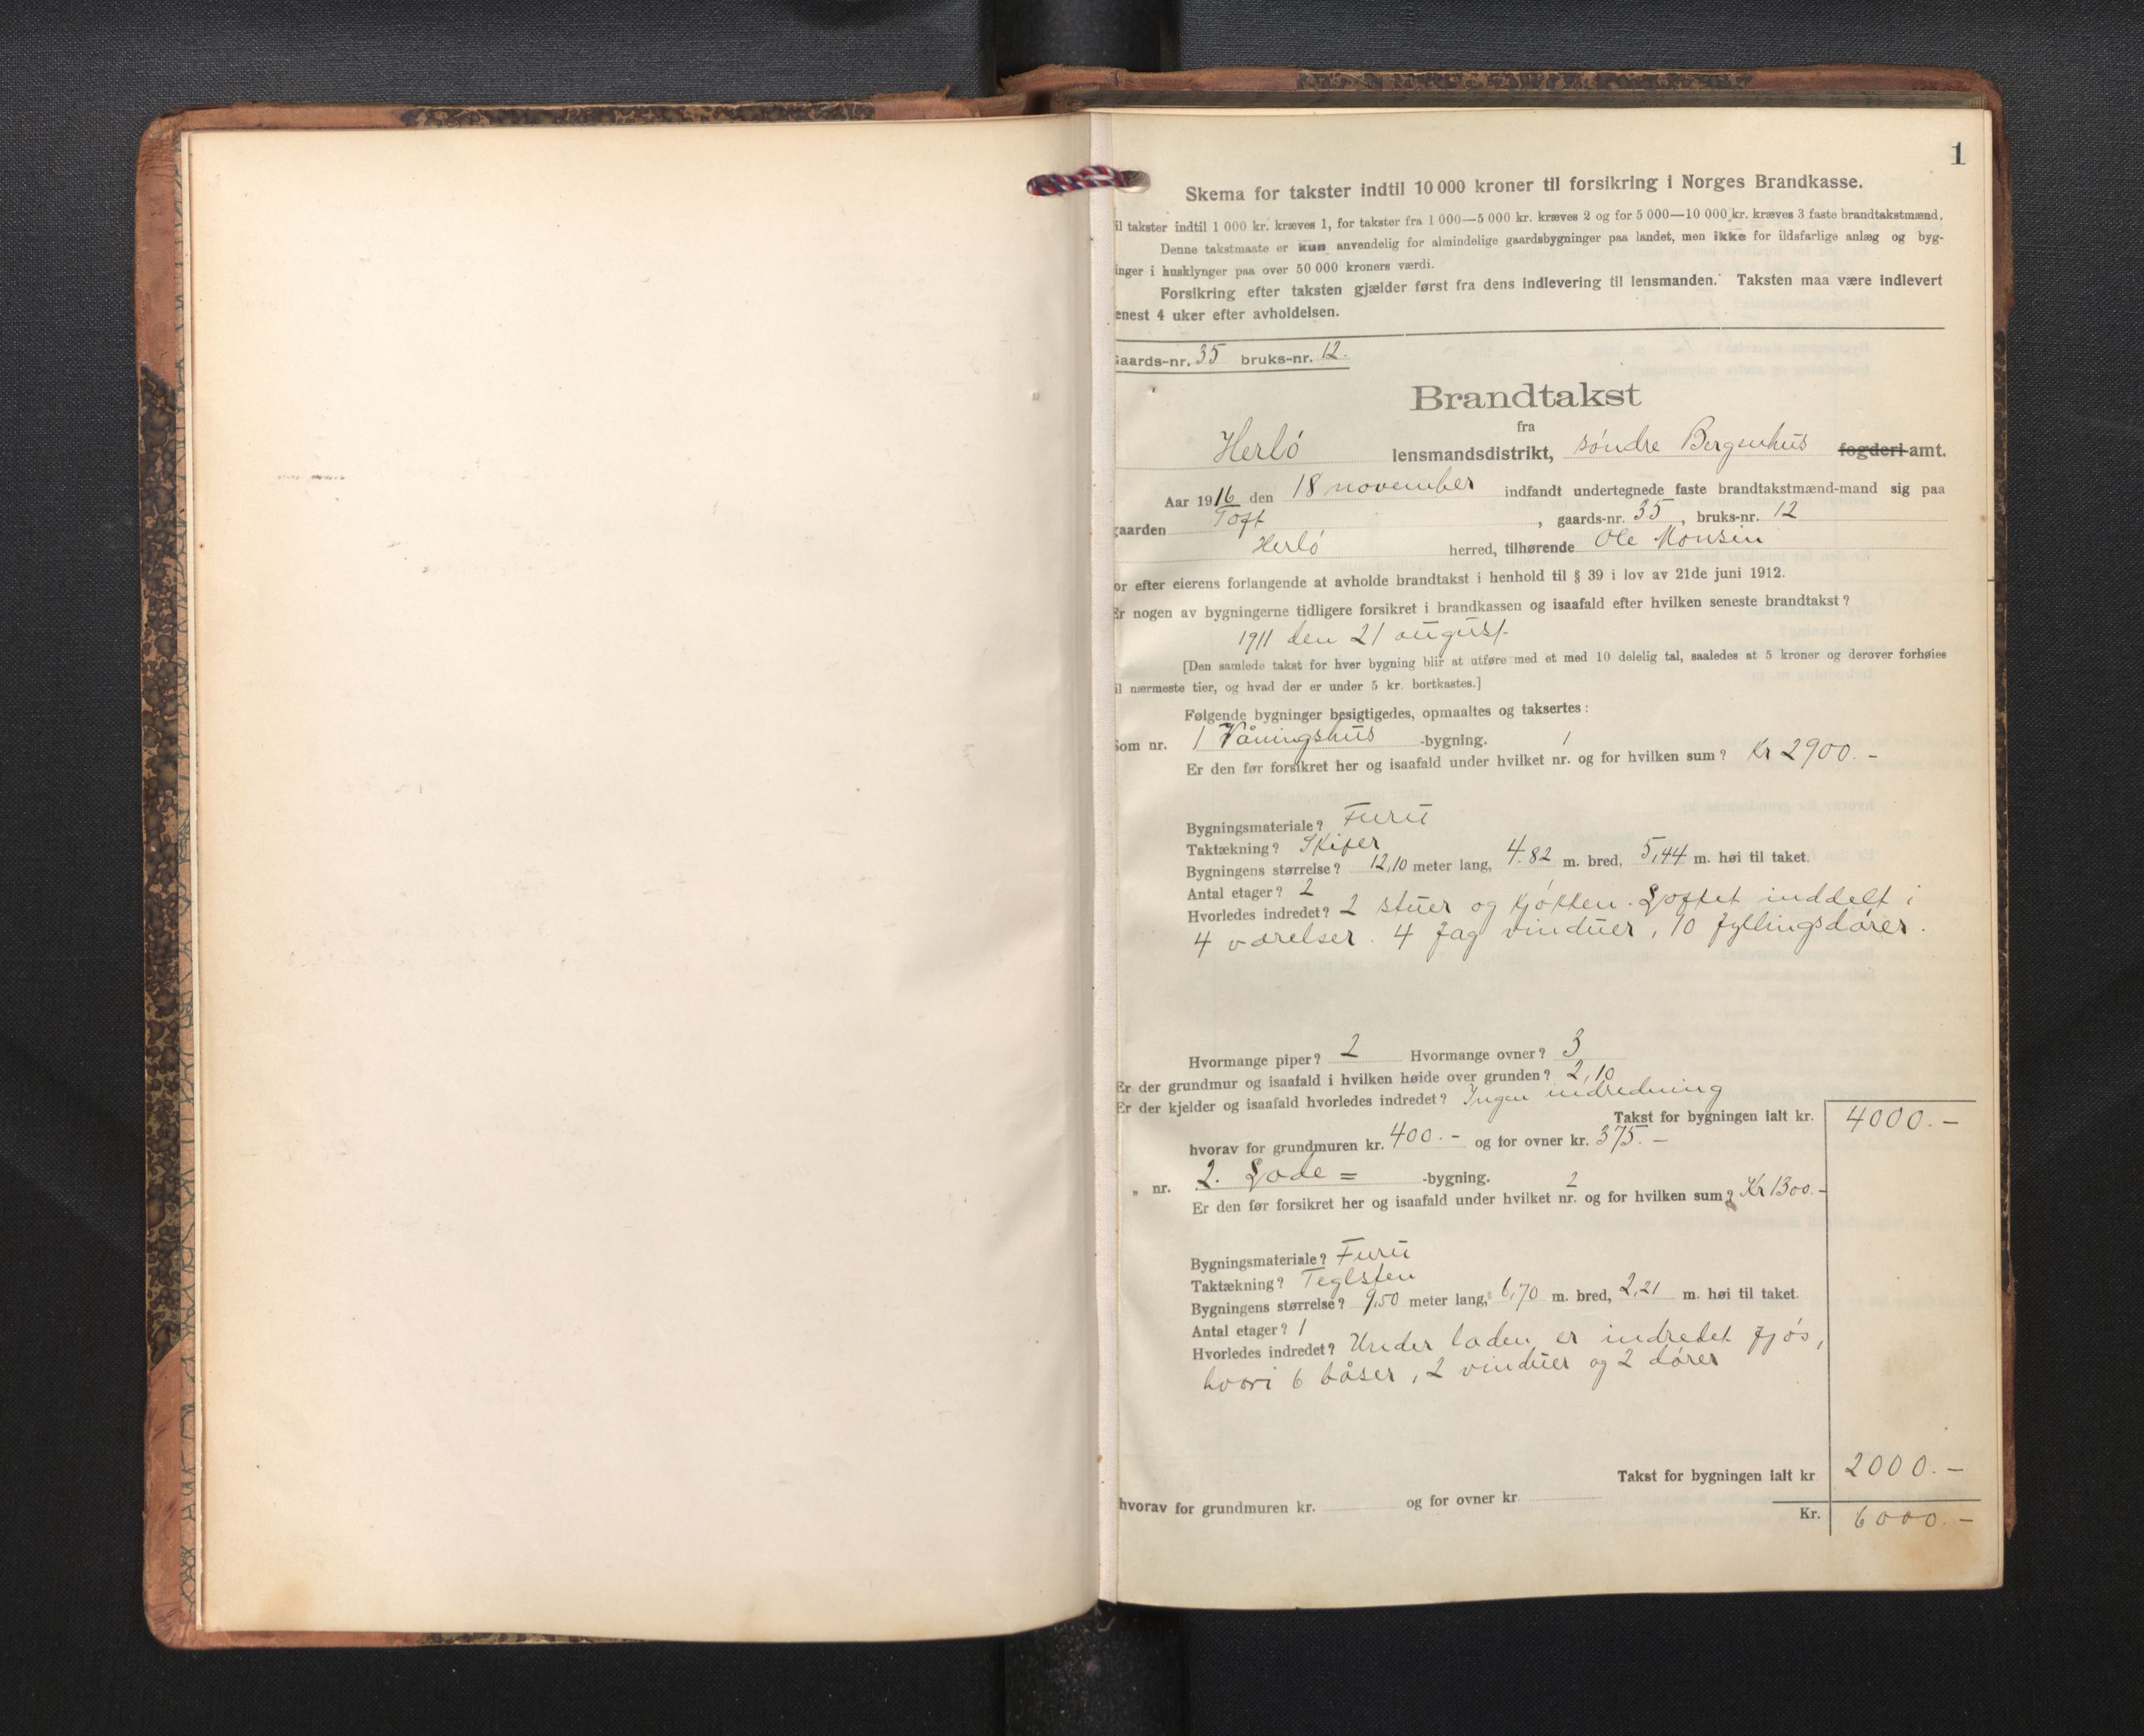 1
Skema for takster indtil 10 000 kroner til forsikring i Norges Brandkasse.
il takster indtil 1 000 kr. kræves 1, for takster fra 1 000—5 000 kr. kræves 2 og for 5 000—10 000 kr. kræves 3 faste brandtakstmænd.
Denne takstmaate er kun anvendelig for almindelige gaardsbygninger paa landet, men ikke for ildsfarlige anlæg og byg-
inger i husklynger paa over 50 000 kroners værdi.
Forsikring efter taksten gjælder først fra dens indlevering til lensmanden. Taksten maa være indlevert
enest 4 uker efter avholdelsen.
aards-nr. 35 bruks-nr. 12.
Brandtakst
fra
Herlö lensmandsdistrikt, söndre Bergenhus fogderi amt.
Aar 1916 den 18 november indfandt undertegnede faste brandtakstmænd-mand sig paa
gaarden Toft , gaards-nr. 35 , bruks-nr. 12
Herlö herred, tilhørende Ole Monsen
or efter eierens forlangende at avholde brandtakst i henhold til § 39 i lov av 21de juni 1912.
Er nogen av bygningerne tidligere forsikret i brandkassen og isaafald efter hvilken seneste brandtakst?
1911 den 21 august.
[Den samlede takst for hver bygning blir at utføre med et med 10 delelig tal, saaledes at 5 kroner og derover forhøies
il nærmeste tier, og hvad der er under 5 kr. bortkastes.]
Følgende bygninger besigtigedes, opmaaltes og taksertes:
Som nr. 1 Våningshus -bygning. 1
Er den før forsikret her og isaafald under hvilket nr. og for hvilken sum? Kr 2900.-
Bygningsmateriale? Furu
Taktækning? Skifer
Bygningens størrelse? 12,10 meter lang, 4.82 m. bred, 5,44 m. høi til taket.
Antal etager? 2
Hvorledes indredet? 2 stuer og kjökken. Loftet inddelt i
4 værelser. 4 fag vinduer, 10 fyllingsdörer.
Hvormange piper? 2 Hvormange ovner? 3
Er der grundmur og isaafald i hvilken høide over grunden? 2,10
Er der kjelder og isaafald hvorledes indredet? Ingen indredning
Takst for bygningen ialt kr. 4000.-
hvorav for grundmuren kr. 400.- og for ovner kr. 375.-
„ nr. 2. Lade = -bygning. 2
Er den før forsikret her og isaafald under hvilket nr. og for hvilken sum? Kr 1300.-
Bygningsmateriale? Furu
Taktækning? Teglsten
Bygningens størrelse? 9,50 meter lang, 6,70 m. bred, 2,21 m. høi til taket.
Antal etager? 1
Hvorledes indredet? Under laden er indredet fjös,
hvori 6 båser, 2 vinduer og 2 dörer
Takst for bygningen ialt kr 2000.-
hvorav for grundmuren kr. og for ovner kr
Kr. 6000.-